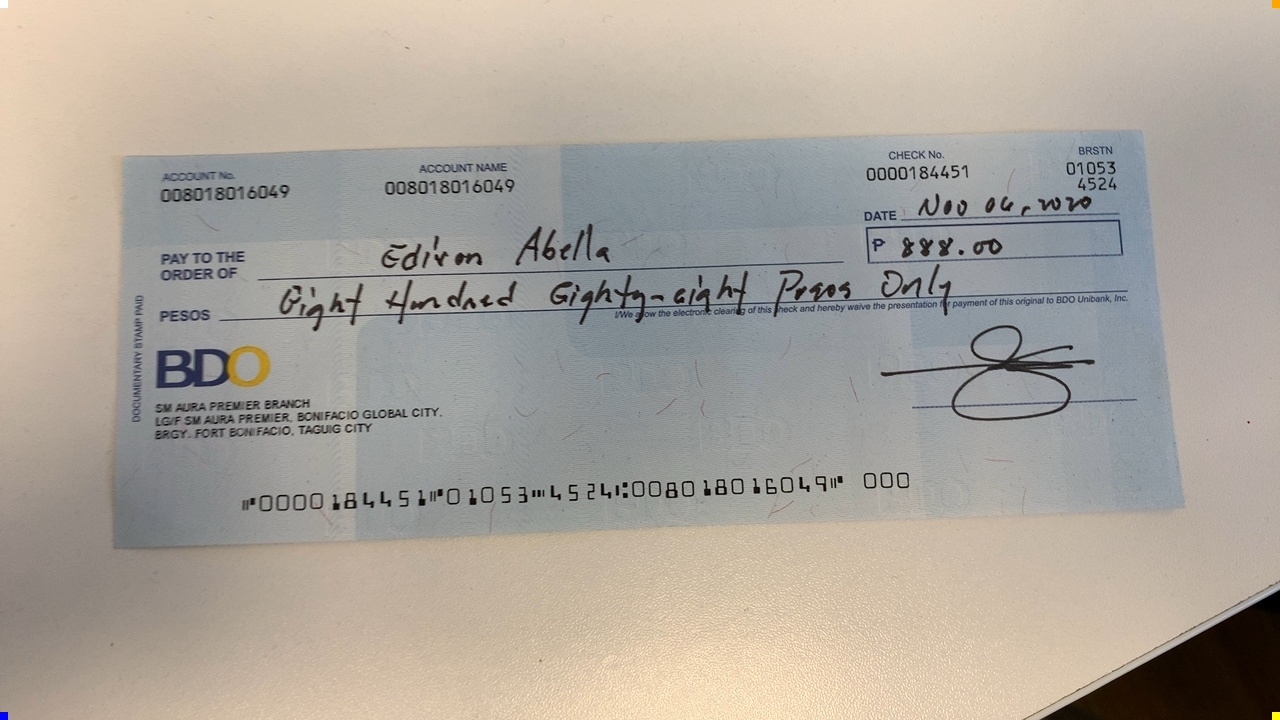 ACCOUNT No.
008018016049
ACCOUNT NAME
008018016049
CHECK No.
0000184451
BRSTN
01053
4524
DATE Nov 06, 2020
PAY TO THE
ORDER OF Edixon Abella
₱ 888.00
PESOS Eight Hundred Eighty-eight Pesos Only
I/We allow the electronic clearing of this check and hereby waive the presentation for payment of this original to BDO Unibank, Inc.
DOCUMENTARY STAMP PAID
BDO
SM AURA PREMIER BRANCH
LG/F SM AURA PREMIER, BONIFACIO GLOBAL CITY,
BRGY. FORT BONIFACIO, TAGUIG CITY
⑈0000184451⑈01053⑉4524⑆008018016049⑈ 000